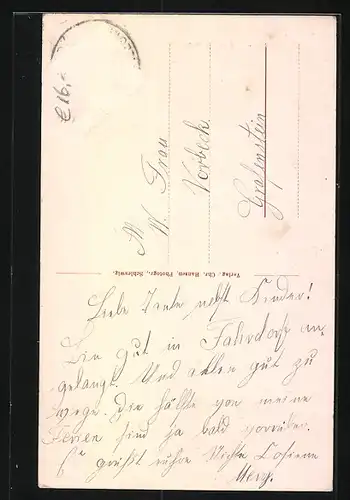 € 16,-
Frau
W. Vorbeck
Grafenstein
Verlag: Chr. Hansen, Photogr., Schleswig.
Liebe Tante nebst Kinder!
Bin gut in Fahrdorf an-
gelangt. Und alles gut zu
wege. Die Hälfte von meine
Ferien sind ja bald vorüber.
Es grüßt Nichte